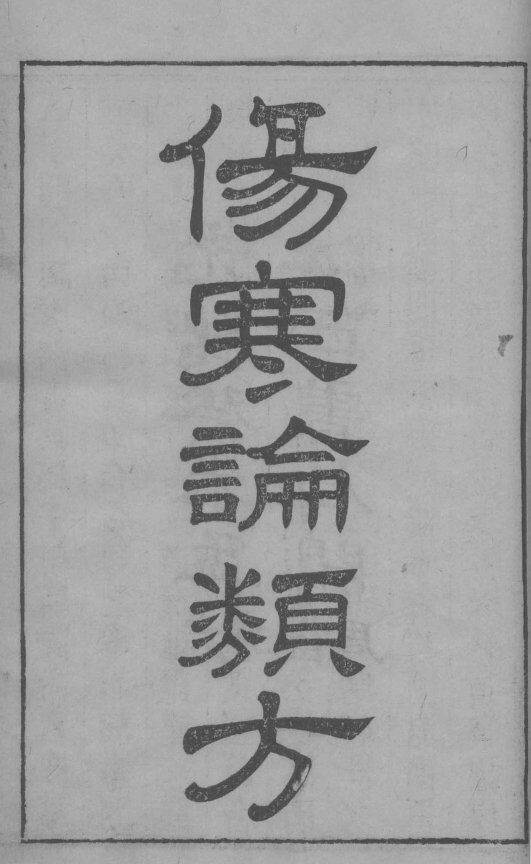 傷寒論類方